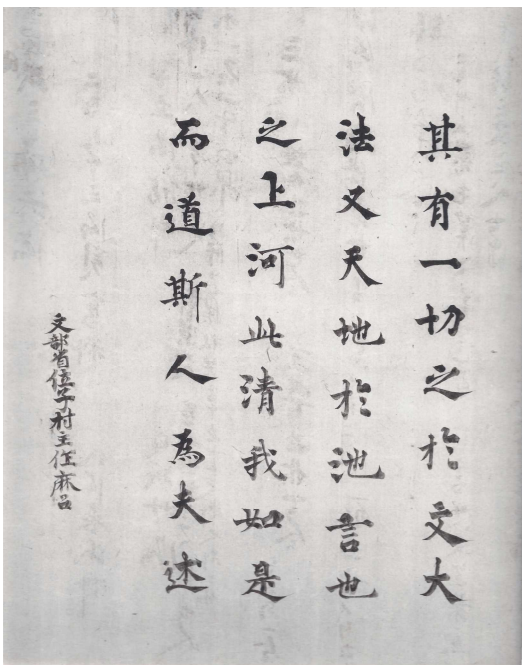 其有一切之於文大
法又天地於池言也
之上河此清我如是
而道斯人為夫述
文部省位子村主作麻呂